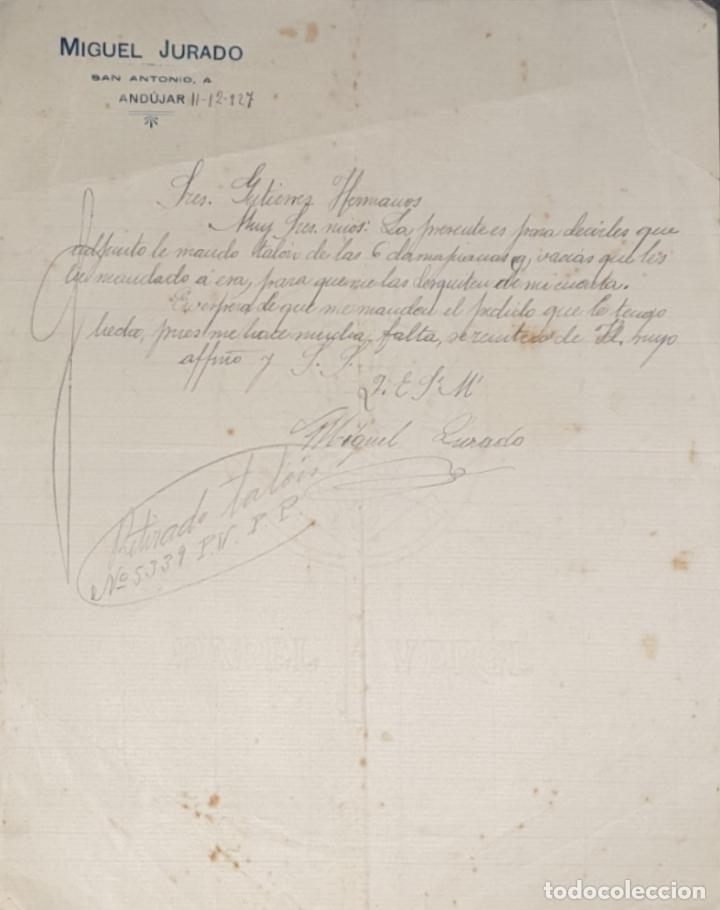 MIGUEL JURADO
SAN ANTONIO, A
ANDÚJAR 11-12-927
Sres. Gutierrez Hermanos
Muy Sres. mios: La presente es para decirles que
adjunto le mando talón de las 6 damajuanas vacias que les
he mandado á esa, para que me las desquiten de mi cuenta.
En espera de que me manden el pedido que le tengo
hecho, pues me hace mucha falta, se reitera de Vd. suyo
affmo y S. S.
Q. E. S. M.
Miguel Jurado
Retirado talón
Nº 5339 P.V. P.P.
PAPEL VERGÉ
todocoleccion